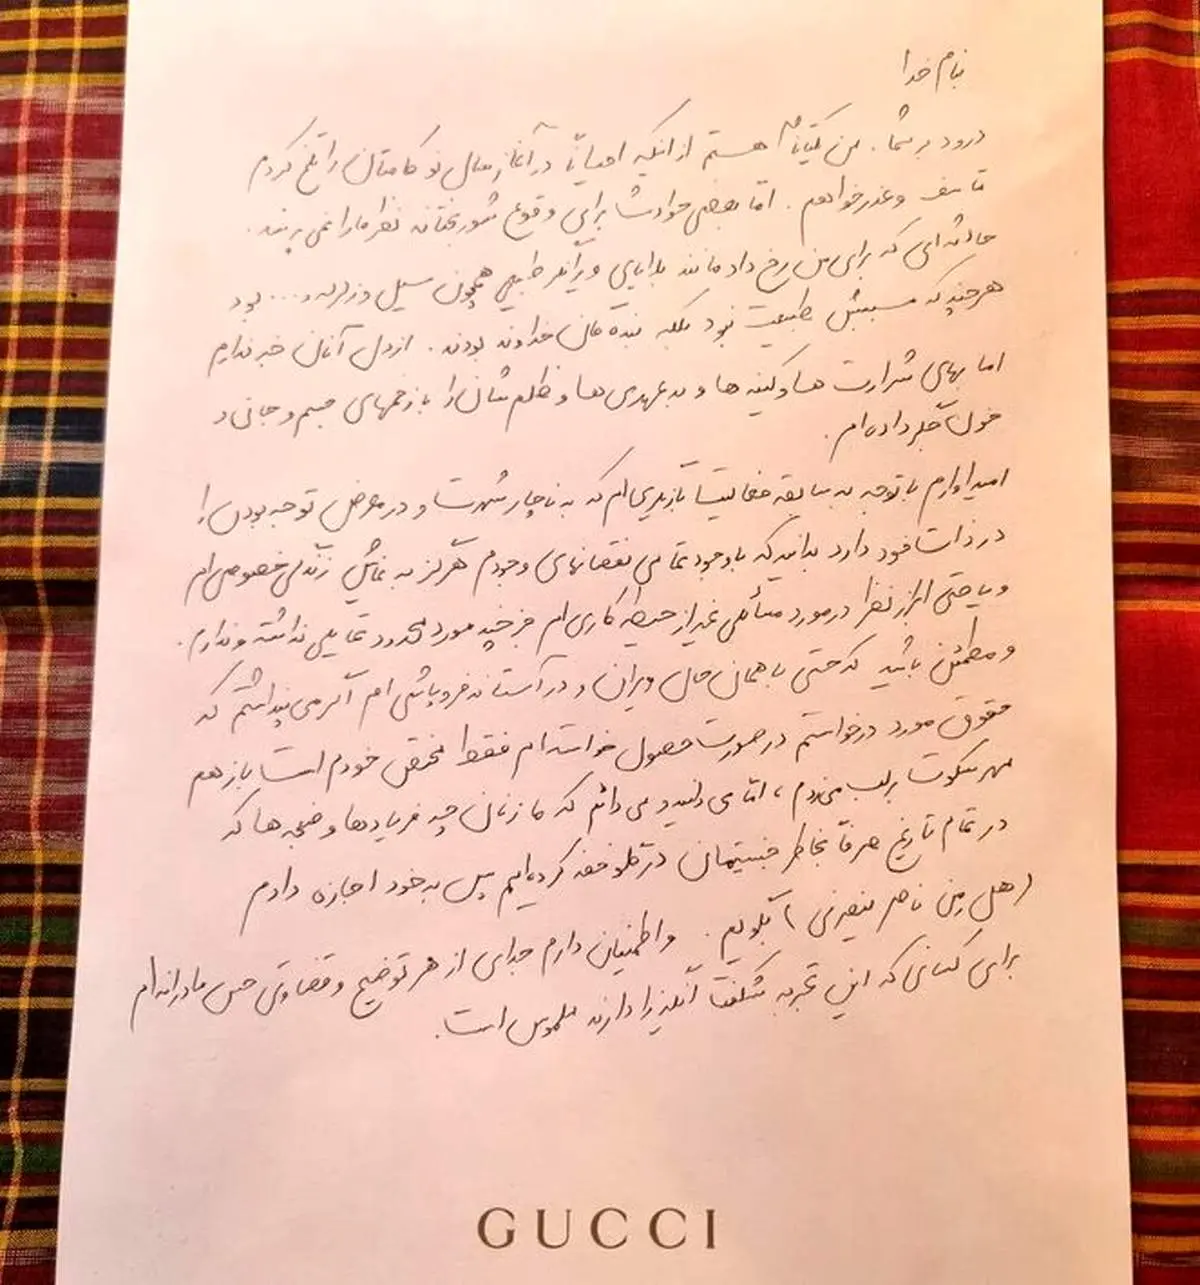 بنام خدا
درود بر شما. من یکتا هستم از اینکه احیاناً در آغاز سال نو کامتان را تلخ کردم
متاسف و عذرخواهم. اما بعضی حوادث برای وقوع شوربختانه نظر ما را نمی پرسند.
حادثه ای که برای من رخ داد مانند بلایای ویرانگر طبیعی همچون سیل و زلزله و... بود
هرچند که مسببش طبیعت نبود بلکه بندگان خداوند بودند. از دل آنان خبر ندارم
اما بهای شرارت ها و کینه ها و بدعهدی ها و ظلم شان را با زخمهای جسم و جان و
خون جگر داده ام.
امیدوارم با توجه به سابقه فعالیت بازیگری ام که به ناچار شهرت و در معرض توجه بودن را
در ذات خود دارد بدانید که با وجود تمامی نقصانهای وجودم هرگز به نمایش زندگی خصوصی ام
و یا حتی ابراز نظر در مورد مسائلی غیر از حیطه کاری ام جز چند مورد محدود تمایلی نداشته و ندارم.
و مطمئن باشید که حتی با همان حال ویران و در آستانه فروپاشی ام اگر می پنداشتم که
حقوق مورد درخواستم در صورت حصول خواسته ام فقط مختص خودم است باز هم
مهر سکوت بر لب می زدم، اما می دانید و می دانم که ما زنان چه فریادها و ضجه ها که
در تمام تاریخ صرفاً بخاطر جنسیتمان در گلو خفه کرده ایم پس به خود اجازه دادم
(هل من ناصر ینصرنی) بگویم. و اطمینان دارم جدای از هر توضیح و قضاوتی حس مادرانه ام
برای کسانی که این تجربه شگفت انگیز را دارند ملموس است.
GUCCI